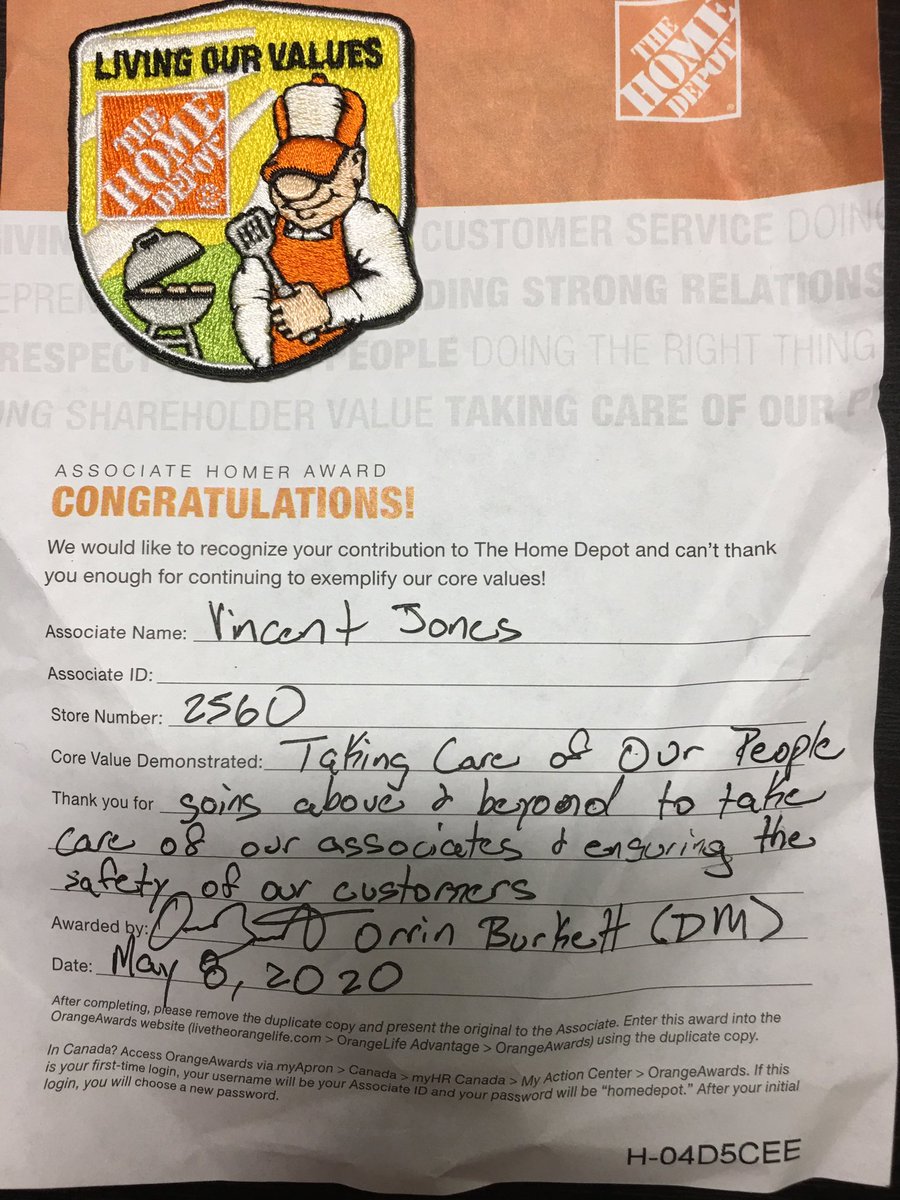 LIVING OUR VALUES
THE
HOME
DEPOT
THE
HOME
DEPOT
CUSTOMER SERVICE DOING
STRONG RELATIONS
RESPECT PEOPLE DOING THE RIGHT THING
SHAREHOLDER VALUE TAKING CARE OF OUR
ASSOCIATE HOMER AWARD
CONGRATULATIONS!
We would like to recognize your contribution to The Home Depot and can't thank
you enough for continuing to exemplify our core values!
Associate Name: Vincent Jones
Associate ID:
Store Number: 2560
Core Value Demonstrated: Taking Care of Our People
Thank you for going above & beyond to take
care of our associates & ensuring the
safety of our customers
Awarded by: Orrin Burkett (DM)
Date: May 8, 2020
After completing, please remove the duplicate copy and present the original to the Associate. Enter this award into the
OrangeAwards website (livetheorangelife.com > OrangeLife Advantage > OrangeAwards) using the duplicate copy.
In Canada? Access OrangeAwards via myApron > Canada > myHR Canada > My Action Center > OrangeAwards. If this
is your first-time login, your username will be your Associate ID and your password will be "homedepot." After your initial
login, you will choose a new password.
H-04D5CEE